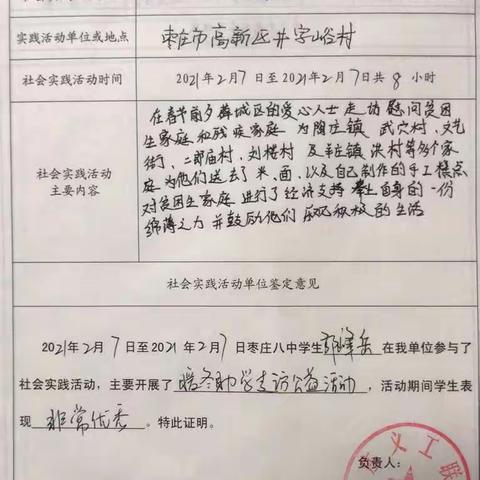 实践活动单位或地点 枣庄市高新区井字峪村
社会实践活动时间 2021年2月7日至2021年2月7日共8小时
社会实践活动
主要内容
在春节前夕薛城区的爱心人士走访慰问贫困
生家庭和残疾家庭 为陶庄镇 武穴村、文艺
街、二郎庙村、刘楼村 及羊庄镇 洪村等多个家
庭为他们送去了米、面、以及自己制作的手工糕点
对贫困生家庭进行了经济支持 自身的一份
绵薄之力 并鼓励他们 积极的生活
社会实践活动单位鉴定意见
2021年2月7日至2021年2月7日枣庄八中学生 在我单位参与了
社会实践活动，主要开展了暖冬助学走访公益活动，活动期间学生表
现 非常优秀 。特此证明。
负责人：
义工联